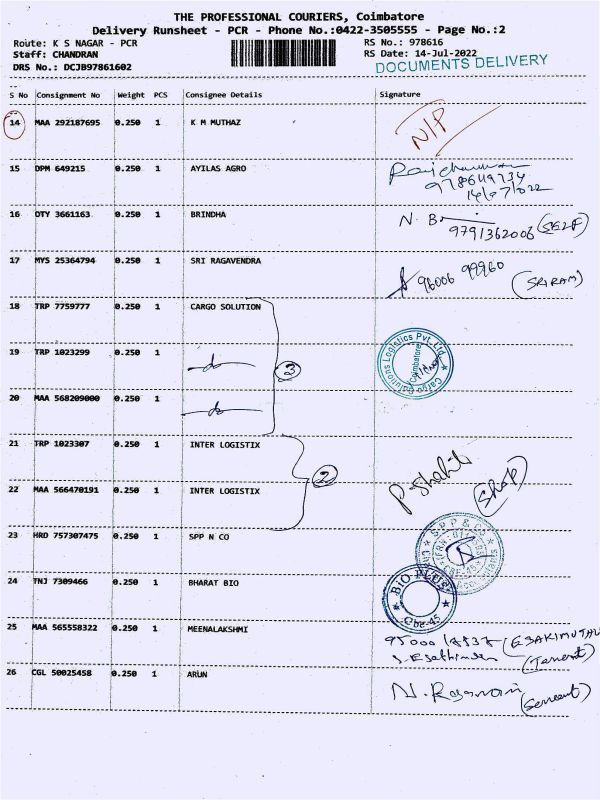 THE PROFESSIONAL COURIERS, Coimbatore
Delivery Runsheet - PCR - Phone No.:0422-3505555 - Page No.:2
Route: K S NAGAR - PCR RS No.: 978616
Staff: CHANDRAN RS Date: 14-Jul-2022
DRS No.: DCJB97861602 DOCUMENTS DELIVERY
S No Consignment No Weight PCS Consignee Details Signature
14 MAA 292187695 0.250 1 K M MUTHAZ N/P
15 DPM 649215 0.250 1 AYILAS AGRO
14/07/2022
16 OTY 3661163 0.250 1 BRINDHA N. B
9791362006 (SELF)
17 MYS 25364794 0.250 1 SRI RAGAVENDRA 96006 99960 (SRIRAM)
18 TRP 7759777 0.250 1 CARGO SOLUTION
19 TRP 1023299 0.250 1 do 3 Cargo Solutions Logistics Pvt. Ltd. Coimbatore
20 MAA 568209000 0.250 1 do
21 TRP 1023307 0.250 1 INTER LOGISTIX
22 MAA 566470191 0.250 1 INTER LOGISTIX 2 P. Shakila
23 HRD 757307475 0.250 1 SPP N CO SPP & CO
24 TNJ 7309466 0.250 1 BHARAT BIO BIO PLUS Cbe-45
25 MAA 565558322 0.250 1 MEENALAKSHMI
26 CGL 50025458 0.250 1 ARUN N.